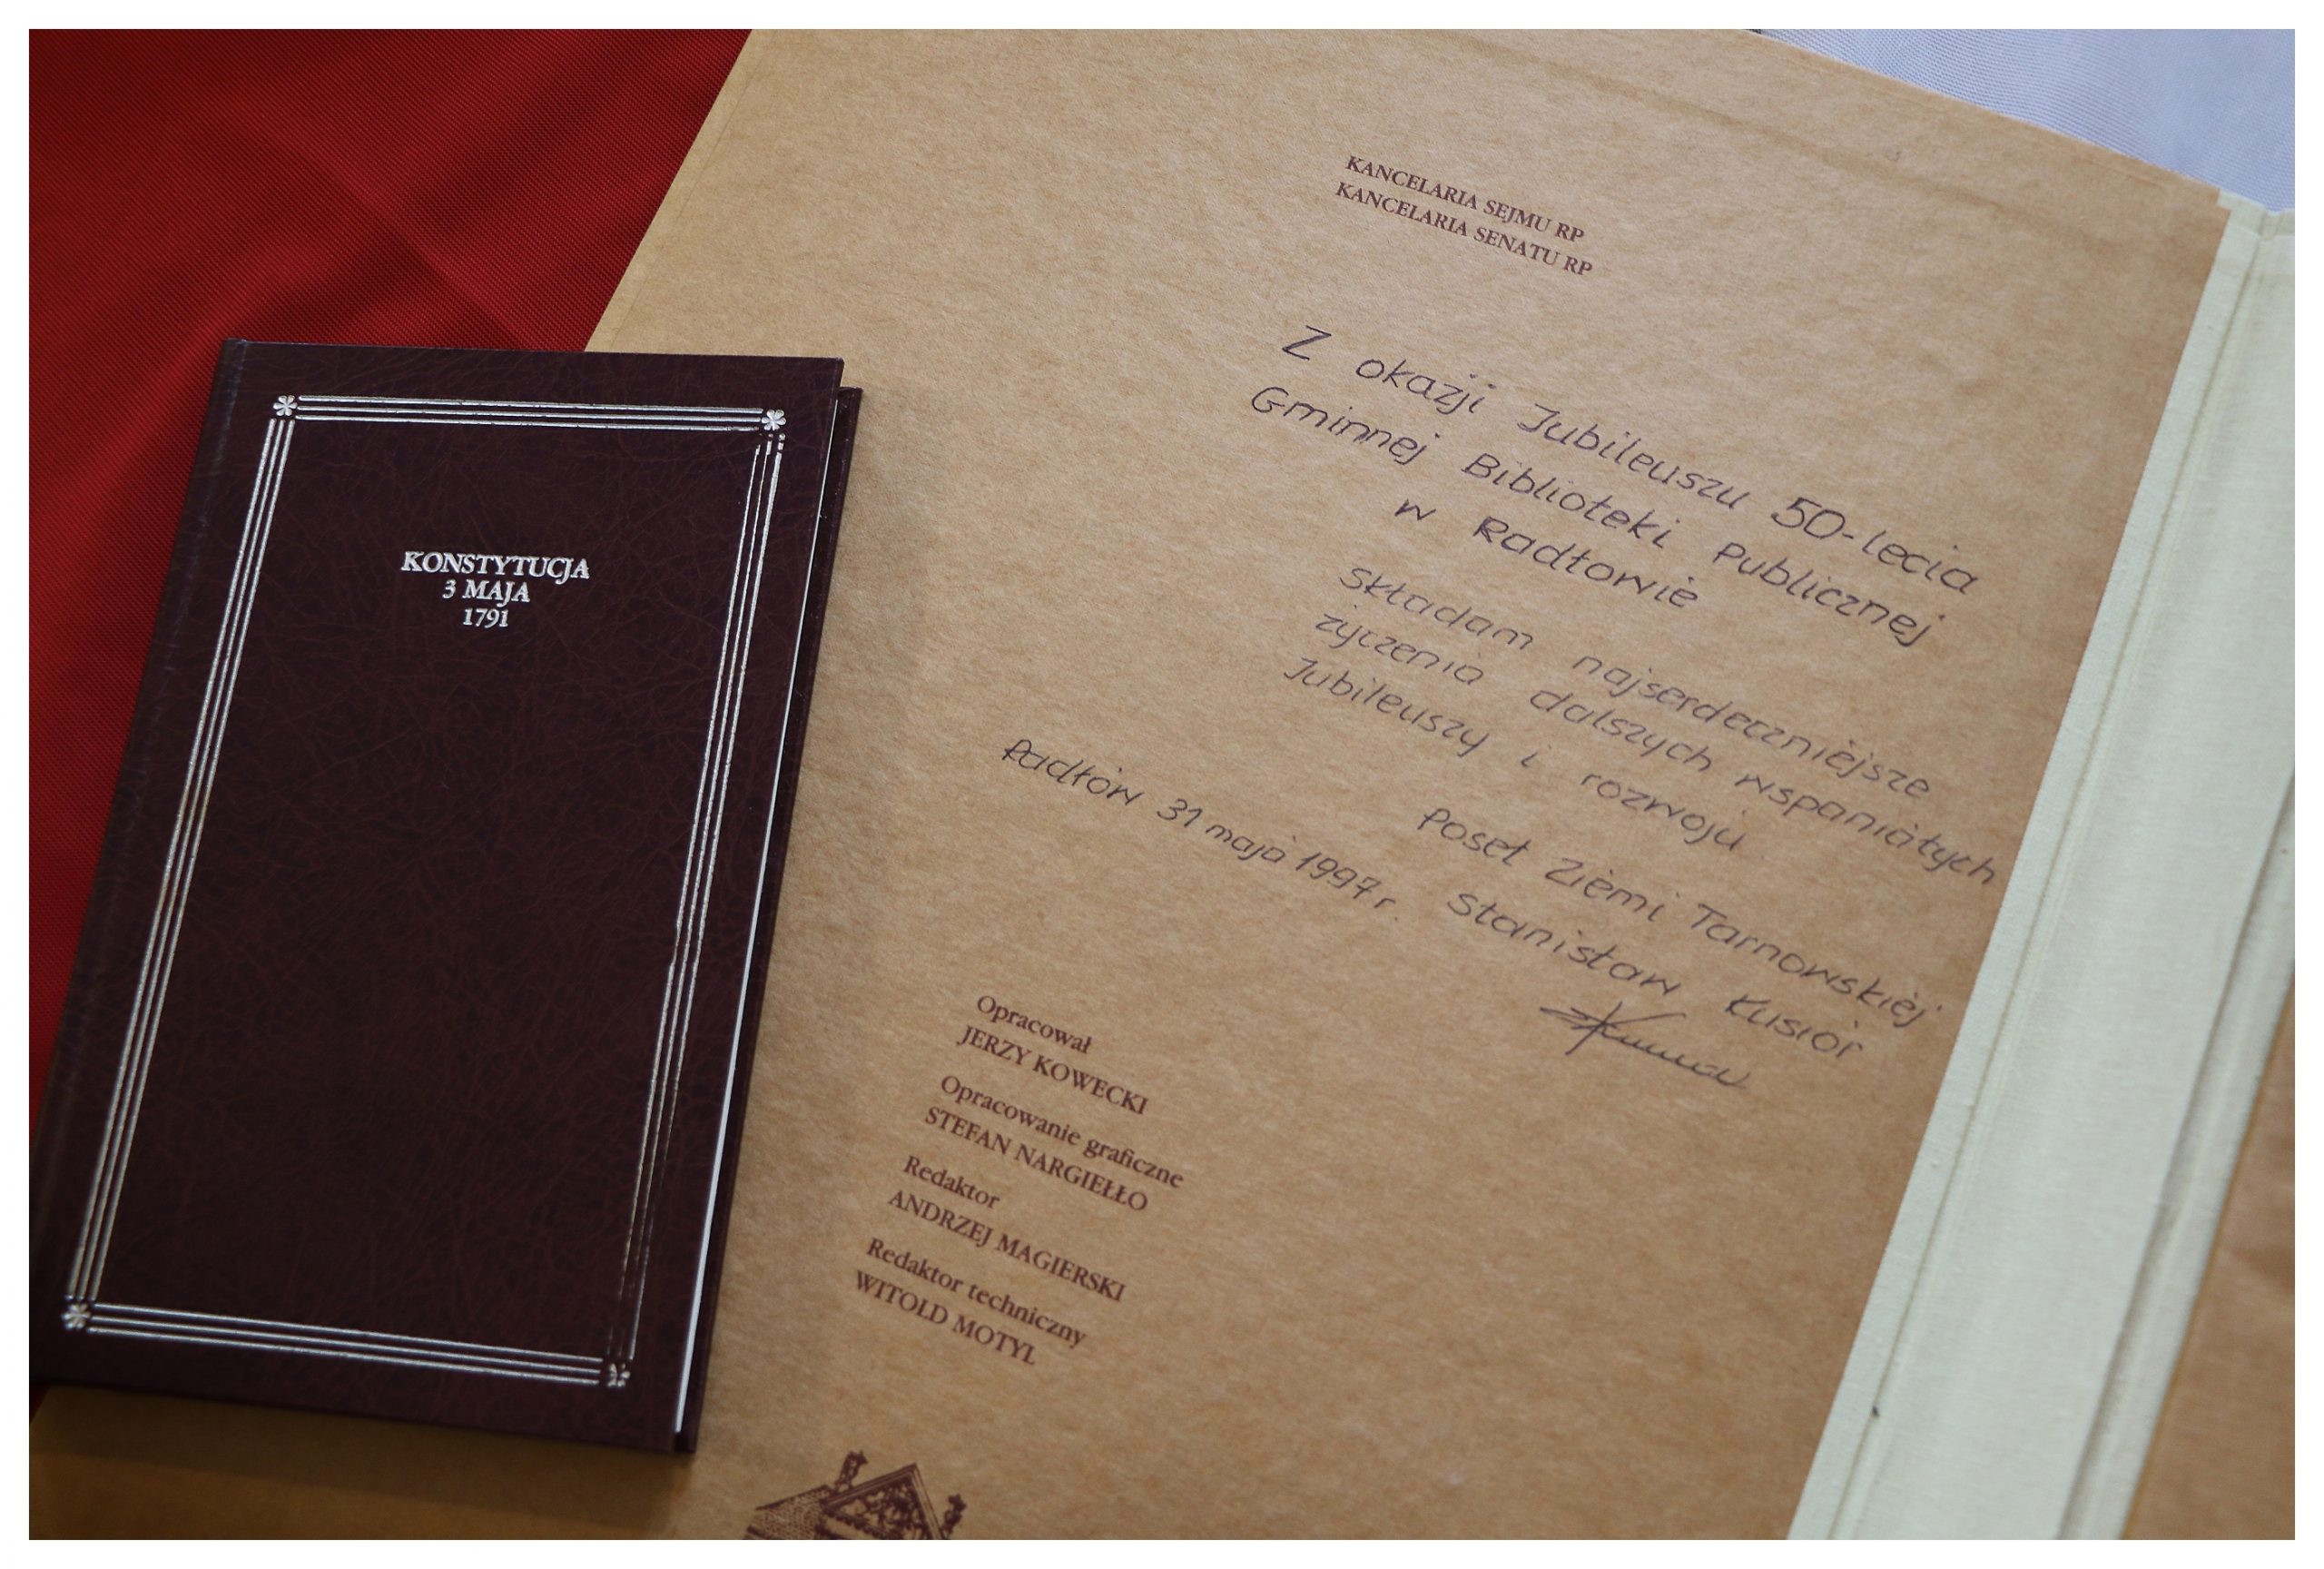 KONSTYTUCJA
3 MAJA
1791
KANCELARIA SEJMU RP
KANCELARIA SENATU RP
Z okazji Jubileuszu 50-lecia
Gminnej Biblioteki Publicznej
w Radłowie
Składam najserdeczniejsze
życzenia dalszych wspaniałych
Jubileuszy i rozwoju
Poseł Ziemi Tarnowskiej
Radłów 31 maja 1997 r. Stanisław Kusior
Opracował
JERZY KOWECKI
Opracowanie graficzne
STEFAN NARGIEŁŁO
Redaktor
ANDRZEJ MAGIERSKI
Redaktor techniczny
WITOLD MOTYL